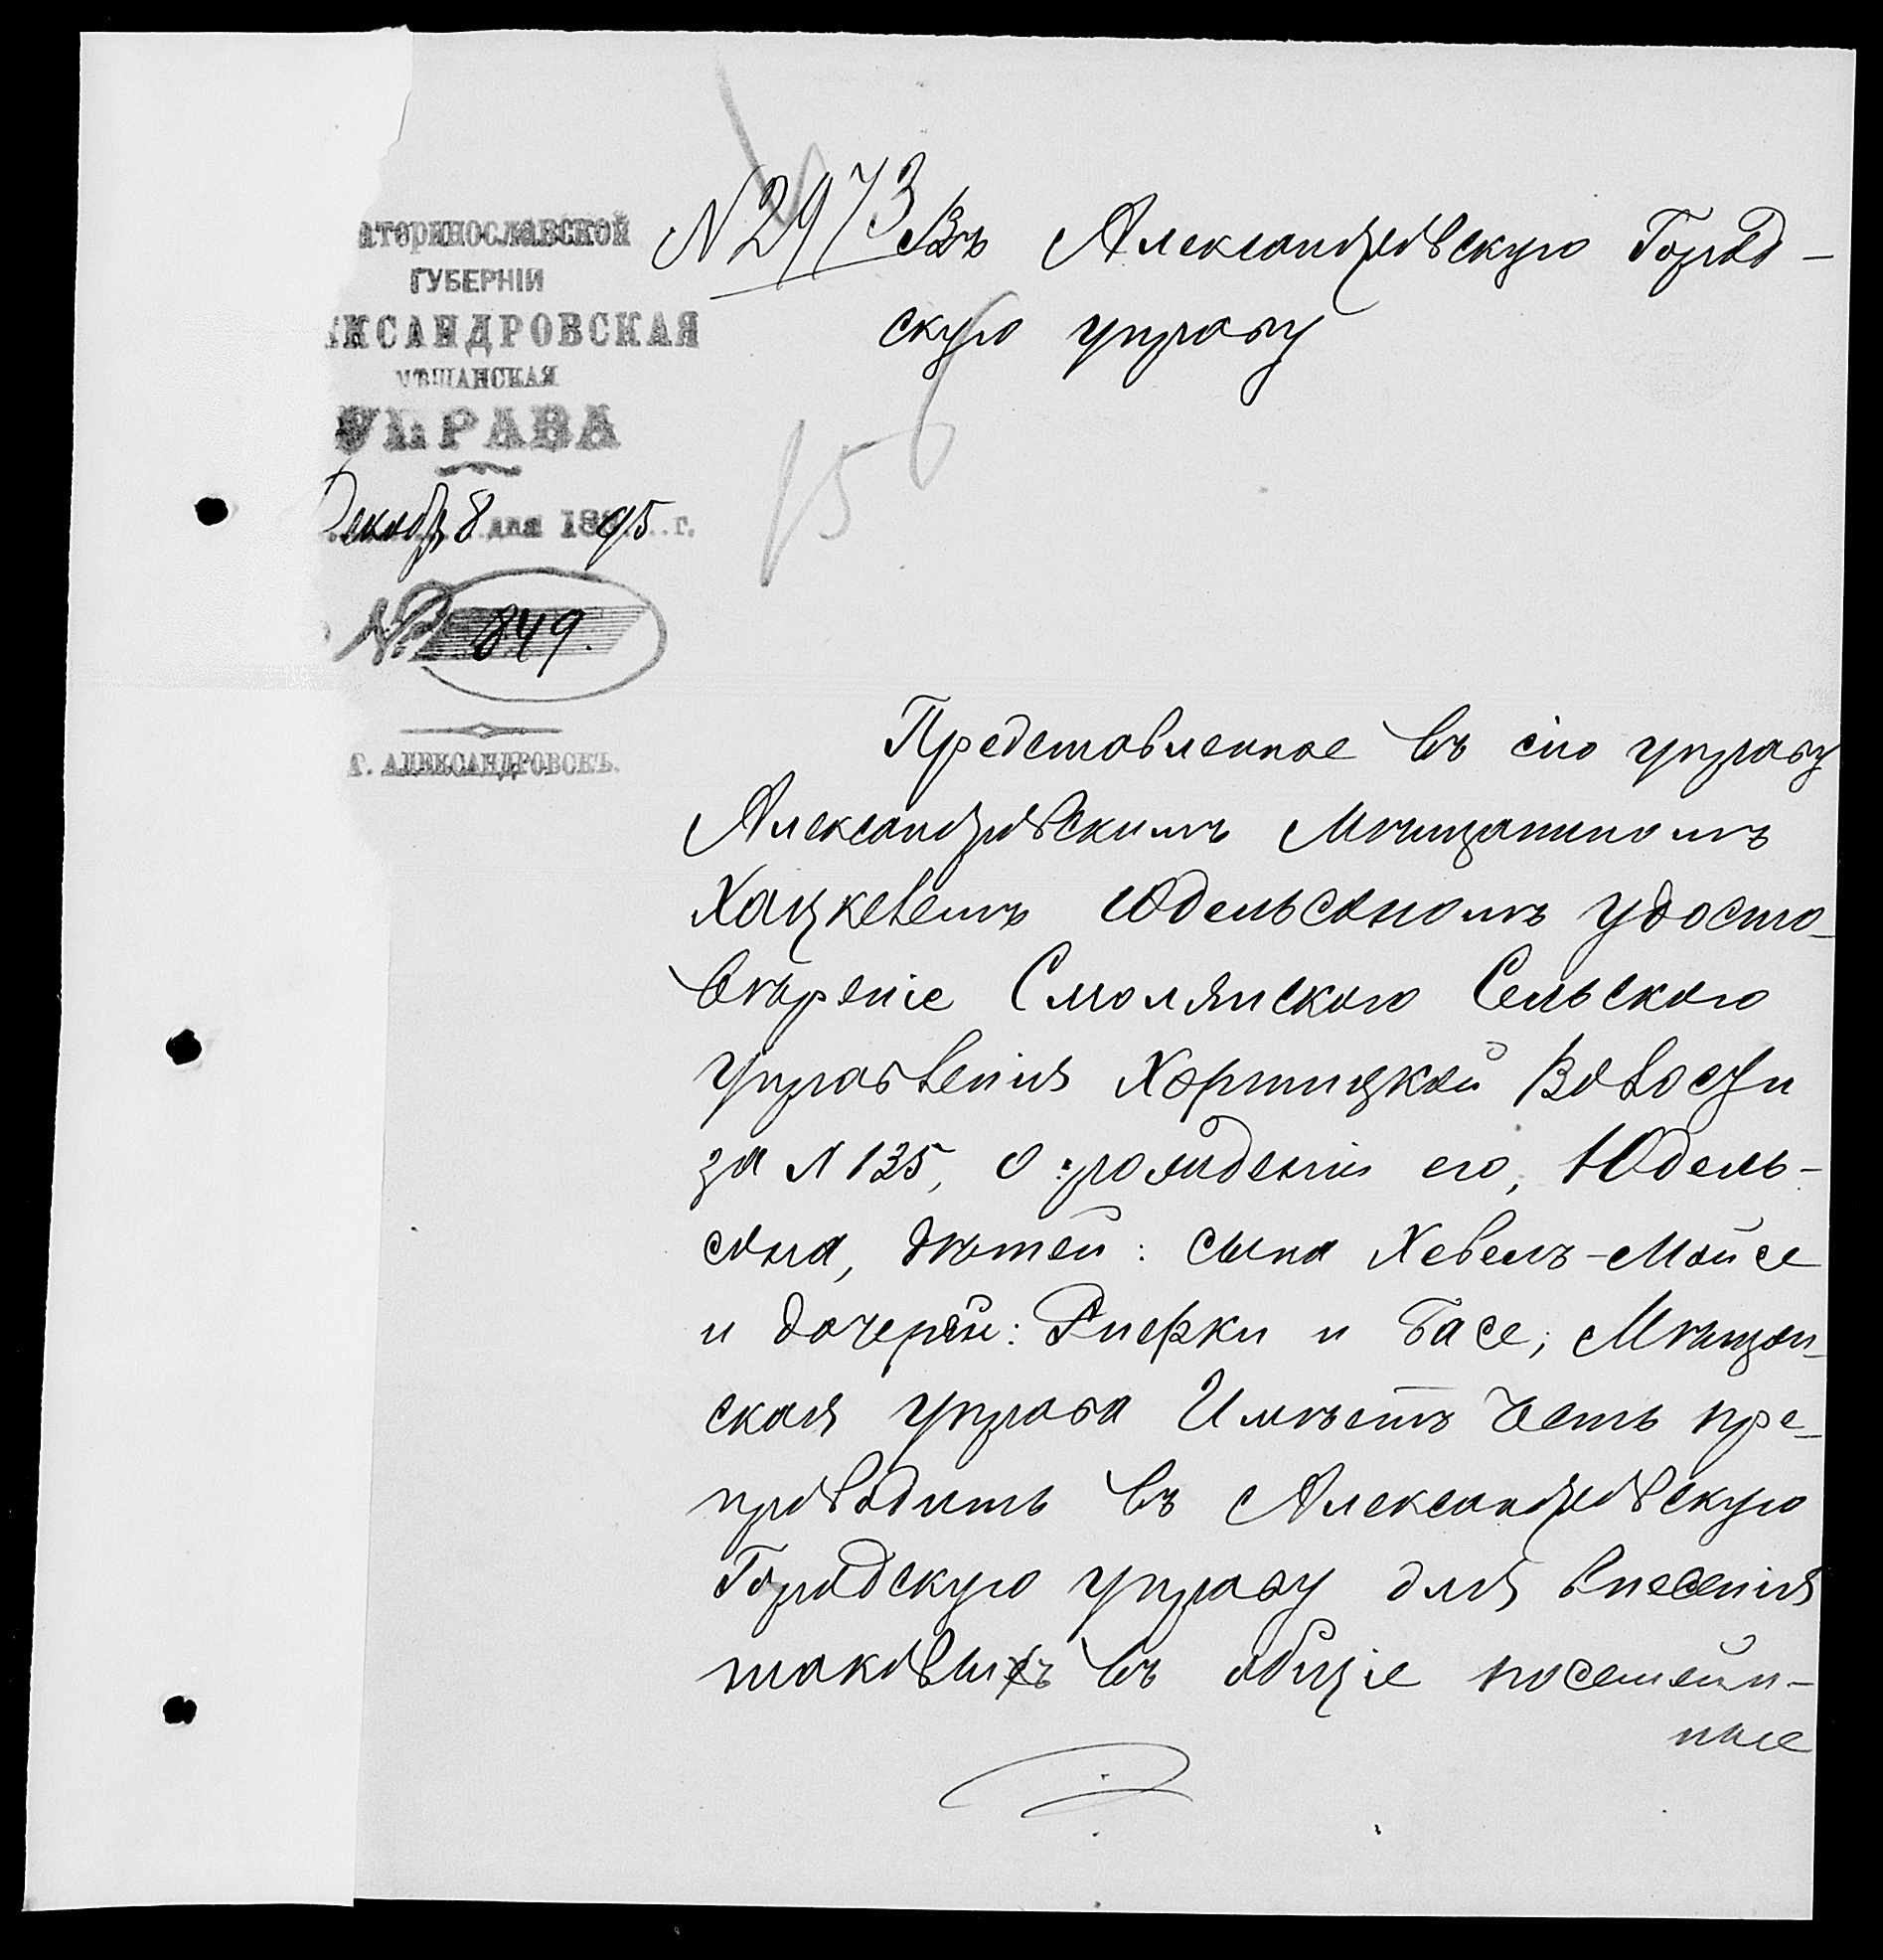 атеринославской
ГУБЕРНІИ
КСАНДРОВСКАЯ
МѢЩАНСКАЯ
УПРАВА
Декабр 8 дня 1895 г.
№ 849.
г. АЛЕКСАНДРОВСКЪ.
№ 2973
Въ Александровскую Город-
скую управу
15
Представленное въ сію управу
Александровскимъ Мѣщаниномъ
Хацкелемъ Юдельсономъ удосто-
вѣреніе Смолянскаго Сельскаго
управленія Хортицкой Волости
за № 135, о рожденіи его, Юдель-
сона, дѣтей: сына Хевель-Мойсе
и дочерей: Рифки и Басе; Мѣщан-
ская управа Имѣетъ Честь пре-
проводить въ Александровскую
Городскую управу для внесенія
таковыхъ въ общіе посемейн-
ные